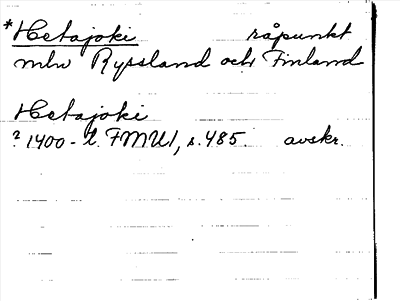 *Hetajoki råpunkt
mlw Ryssland och Finland
Hetajoki
? 1400-t. FMU 1, s. 485. avskr.